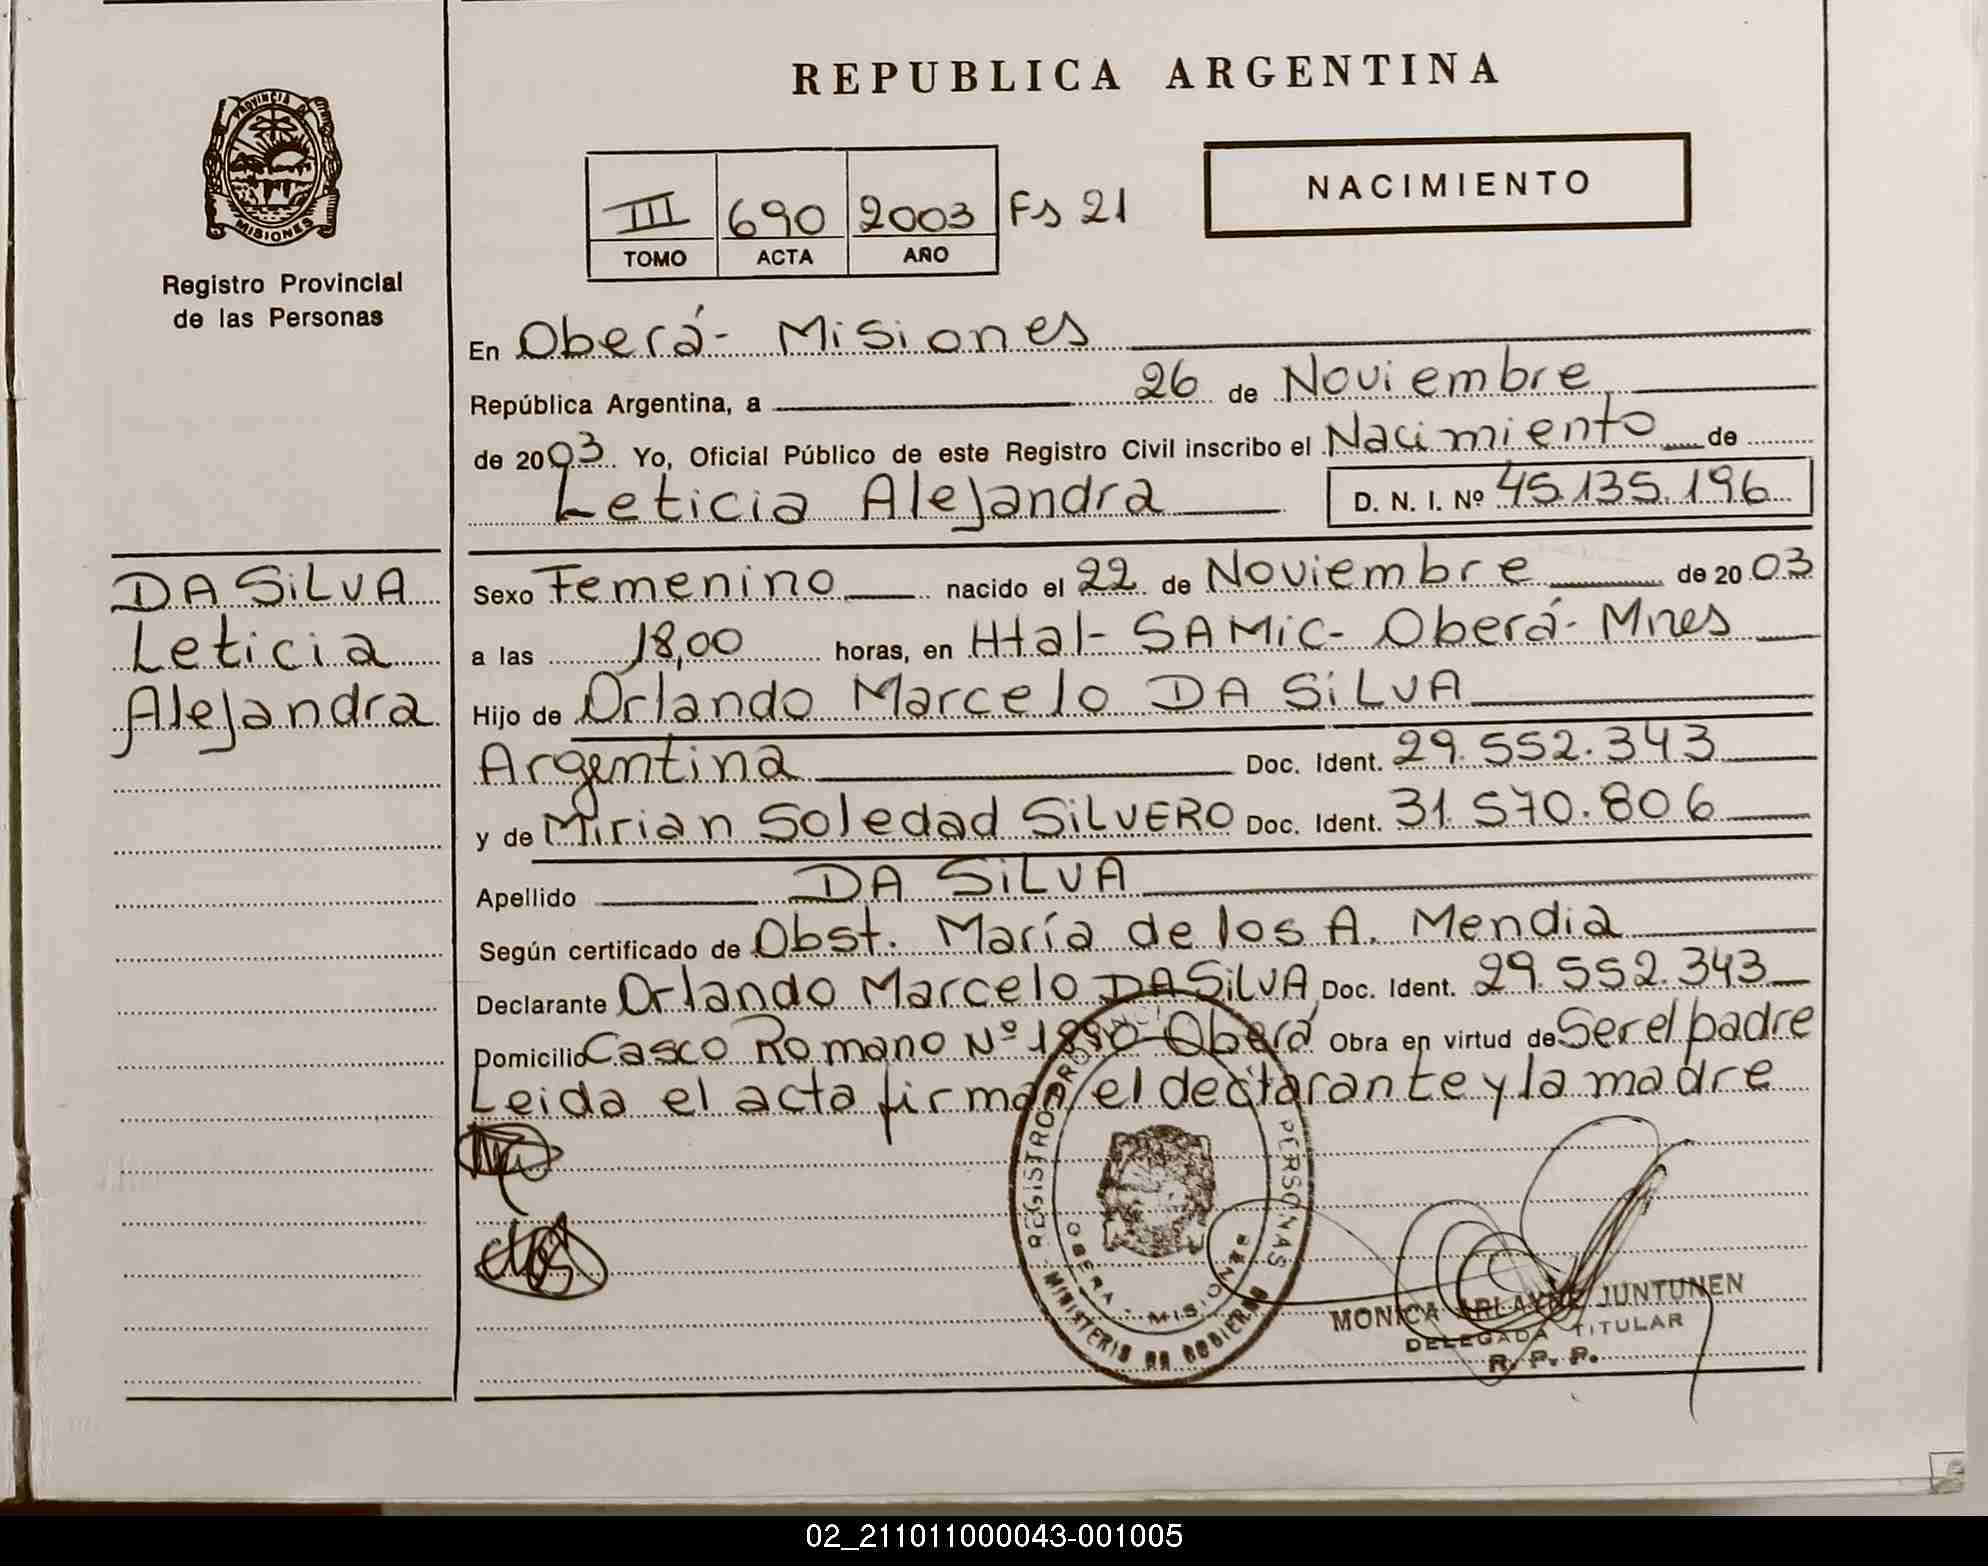 REPUBLICA ARGENTINA
PROVINCIA DE
MISIONES
Registro Provincial
de las Personas
NACIMIENTO
III 690 2003 Fs 21
TOMO ACTA AÑO
En Oberá- Misiones
República Argentina, a 26 de Noviembre
de 2003 Yo, Oficial Público de este Registro Civil inscribo el Nacimiento de
Leticia Alejandra D. N. I. Nº 45.135.196
DA SILVA
Leticia
Alejandra
Sexo Femenino nacido el 22 de Noviembre de 2003
a las 18,00 horas, en Htal- SAMIC- Oberá- Mnes
Hijo de Orlando Marcelo DA SILVA
Argentina Doc. Ident. 29.552.343
y de Mirian Soledad SILVERO Doc. Ident. 31.570.806
Apellido DA SILVA
Según certificado de Obst. María de los A. Mendia
Declarante Orlando Marcelo DA SILVA Doc. Ident. 29.552.343
Domicilio Casco Romano Nº Oberá Obra en virtud de Ser el padre
Leida el acta firman el declarante y la madre
REGISTRO PERSONAS
OBERA - MISIONES
MINISTERIO DE GOBIERNO
MONICA ARLAYNE JUNTUNEN
DELEGADA TITULAR
R. P. P.
02_211011000043-001005